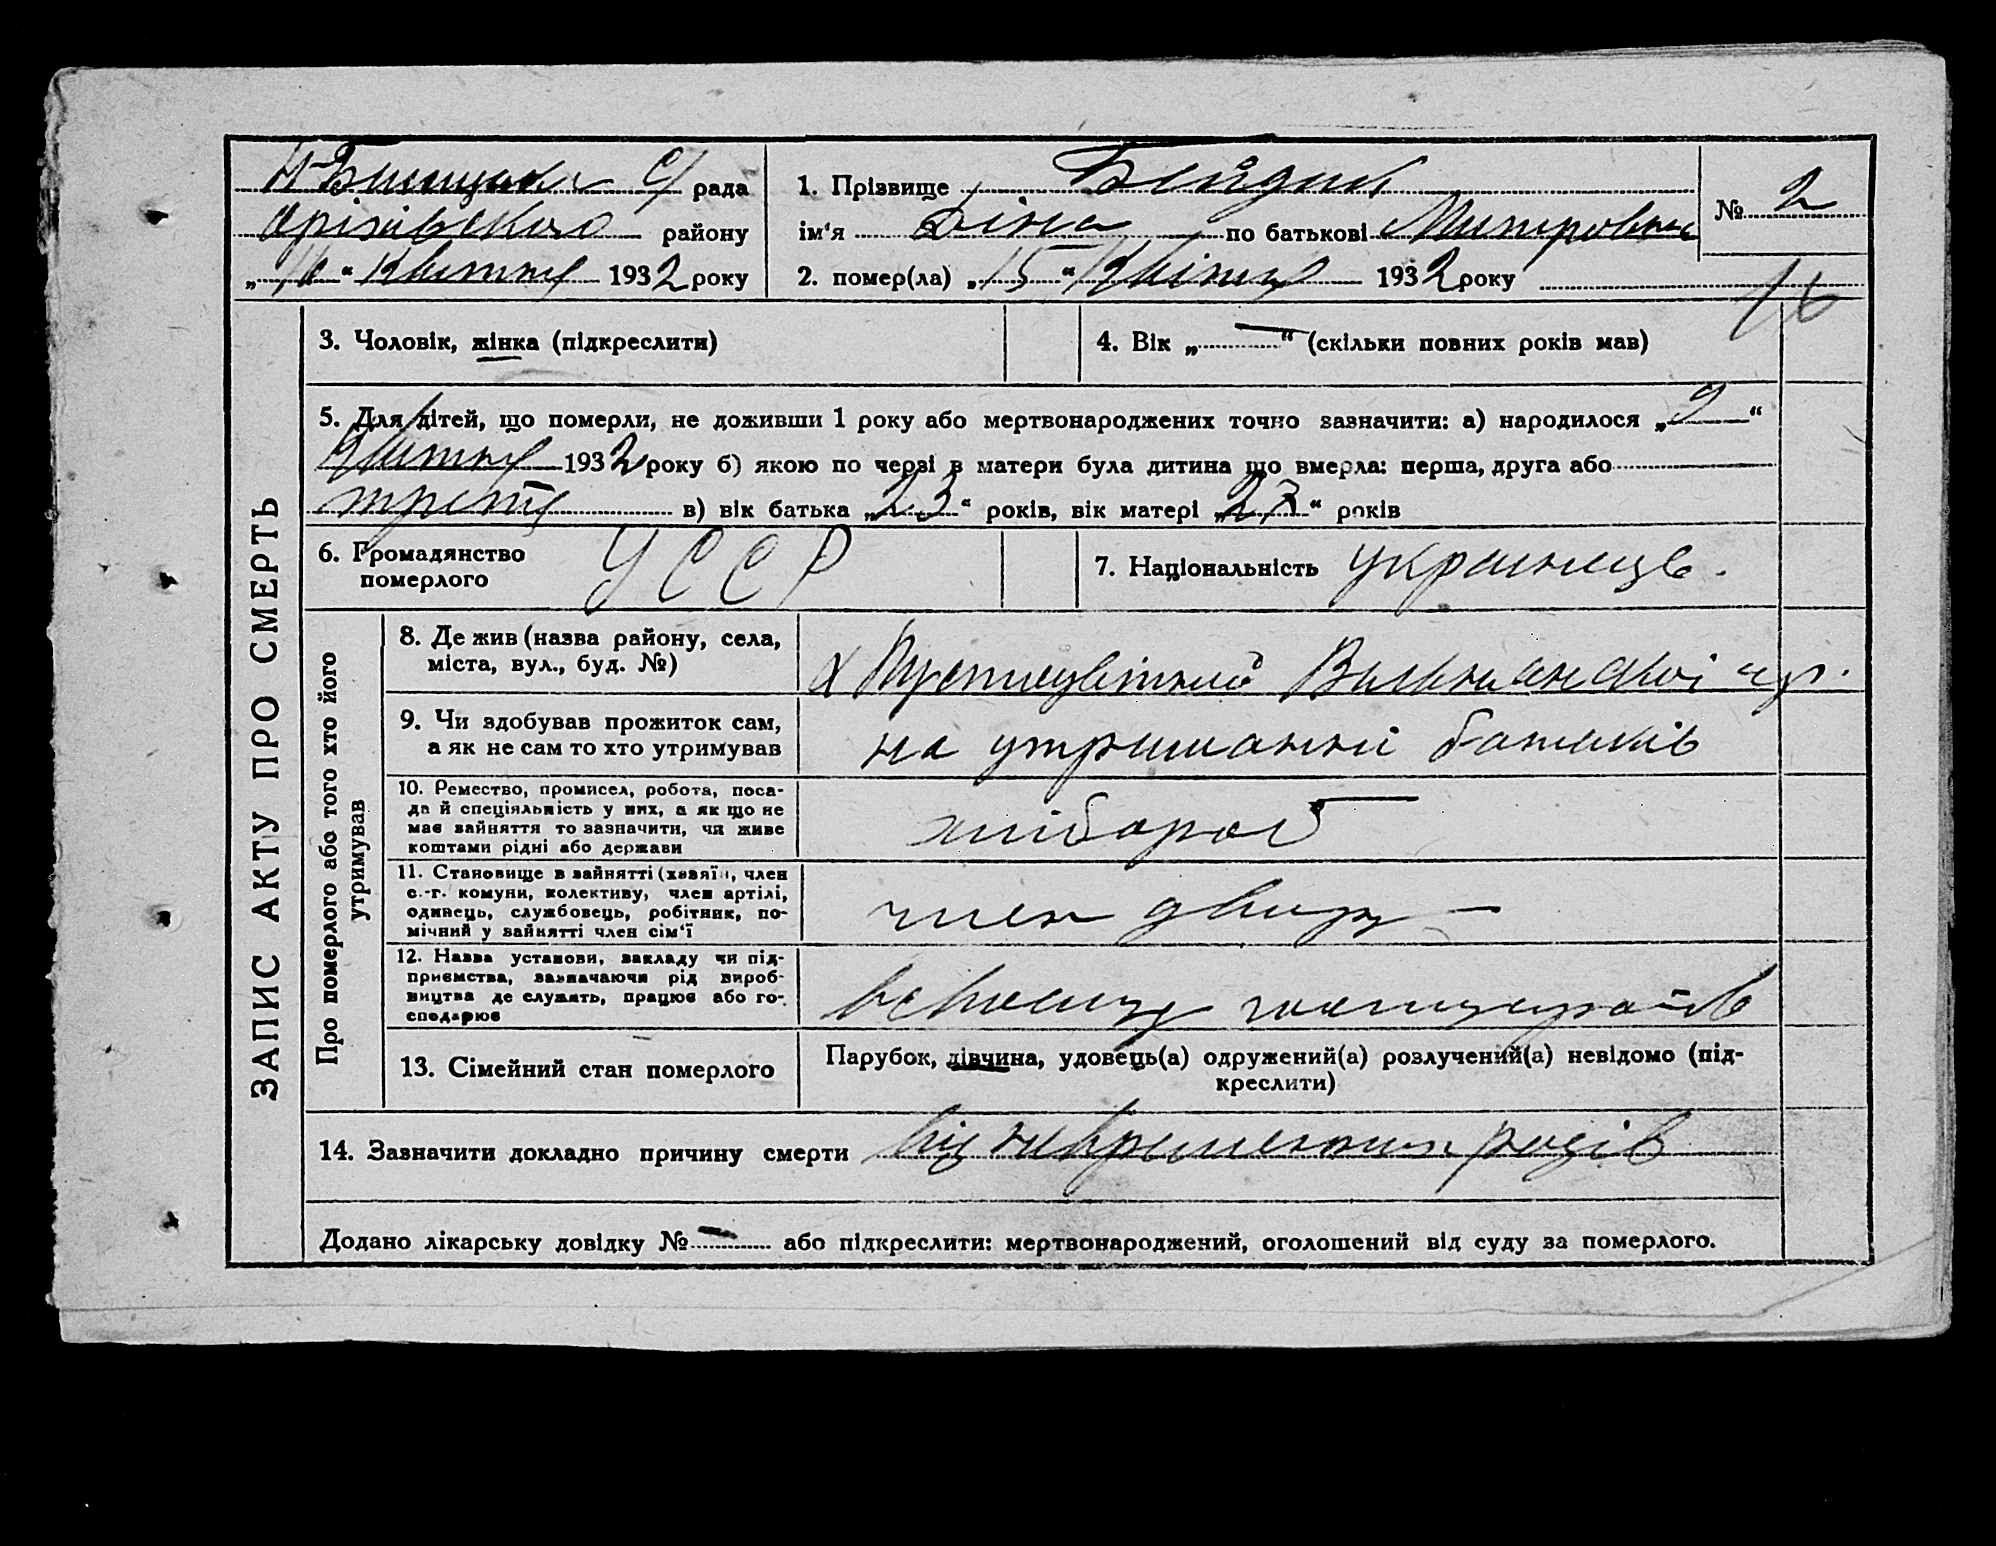 рада
1. Прізвище
№ 2
району
ім'я Діна по батькові
„16" Квітня 1932 року
2. помер(ла) „15" Квітня 1932 року
16
ЗАПИС АКТУ ПРО СМЕРТЬ
3. Чоловік, жінка (підкреслити)
4. Вік „—" (скільки повних років мав)
5. Для дітей, що померли, не доживши 1 року або мертвонароджених точно зазначити: а) народилося „9"
Квітня 1932 року б) якою по черзі в матери була дитина що вмерла: перша, друга або
третя в) вік батька „23" років, вік матері „27" років
6. Громадянство
померлого
УССР
7. Національність українець.
Про померлого або того хто його
утримував
8. Де жив (назва району, села,
міста, вул., буд. №)
9. Чи здобував прожиток сам,
а як не сам то хто утримував
на утриманні батьків
10. Ремество, промисел, робота, поса-
да й спеціяльність у них, а як що не
має зайняття то зазначити, чи живе
коштами рідні або держави
хлібороб
11. Становище в зайнятті (хазяїн, член
с.-г. комуни, колективу, член артілі,
одинець, службовець, робітник, по-
мічний у зайнятті член сім'ї
член двору
12. Назва установи, закладу чи під-
приємства, зазначаючи рід вироб-
ництва де служить, працює або го-
сподарює
13. Сімейний стан померлого
Парубок, дівчина, удовець(а) одружений(а) розлучений(а) невідомо (під-
креслити)
14. Зазначити докладно причину смерти від родів
Додано лікарську довідку № — або підкреслити: мертвонароджений, оголошений від суду за померлого.